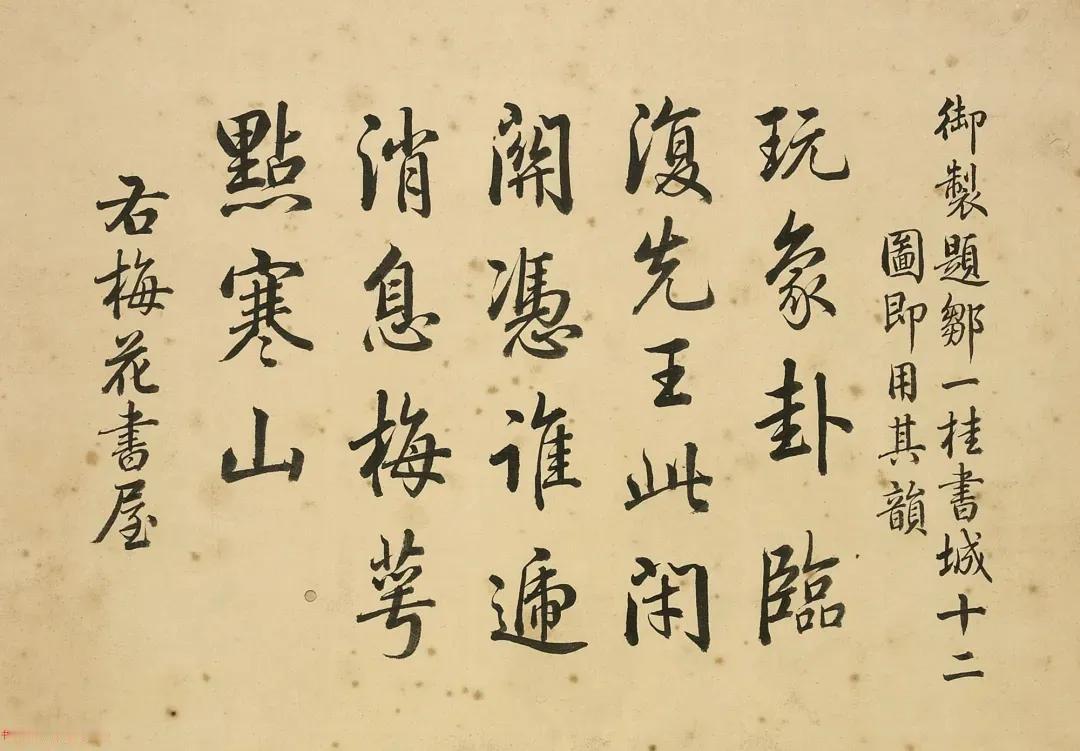 御製題鄒一桂書城十二
圖即用其韻
玩象卦臨
復先王此閉
關憑誰遞
消息梅萼
點寒山
右梅花書屋